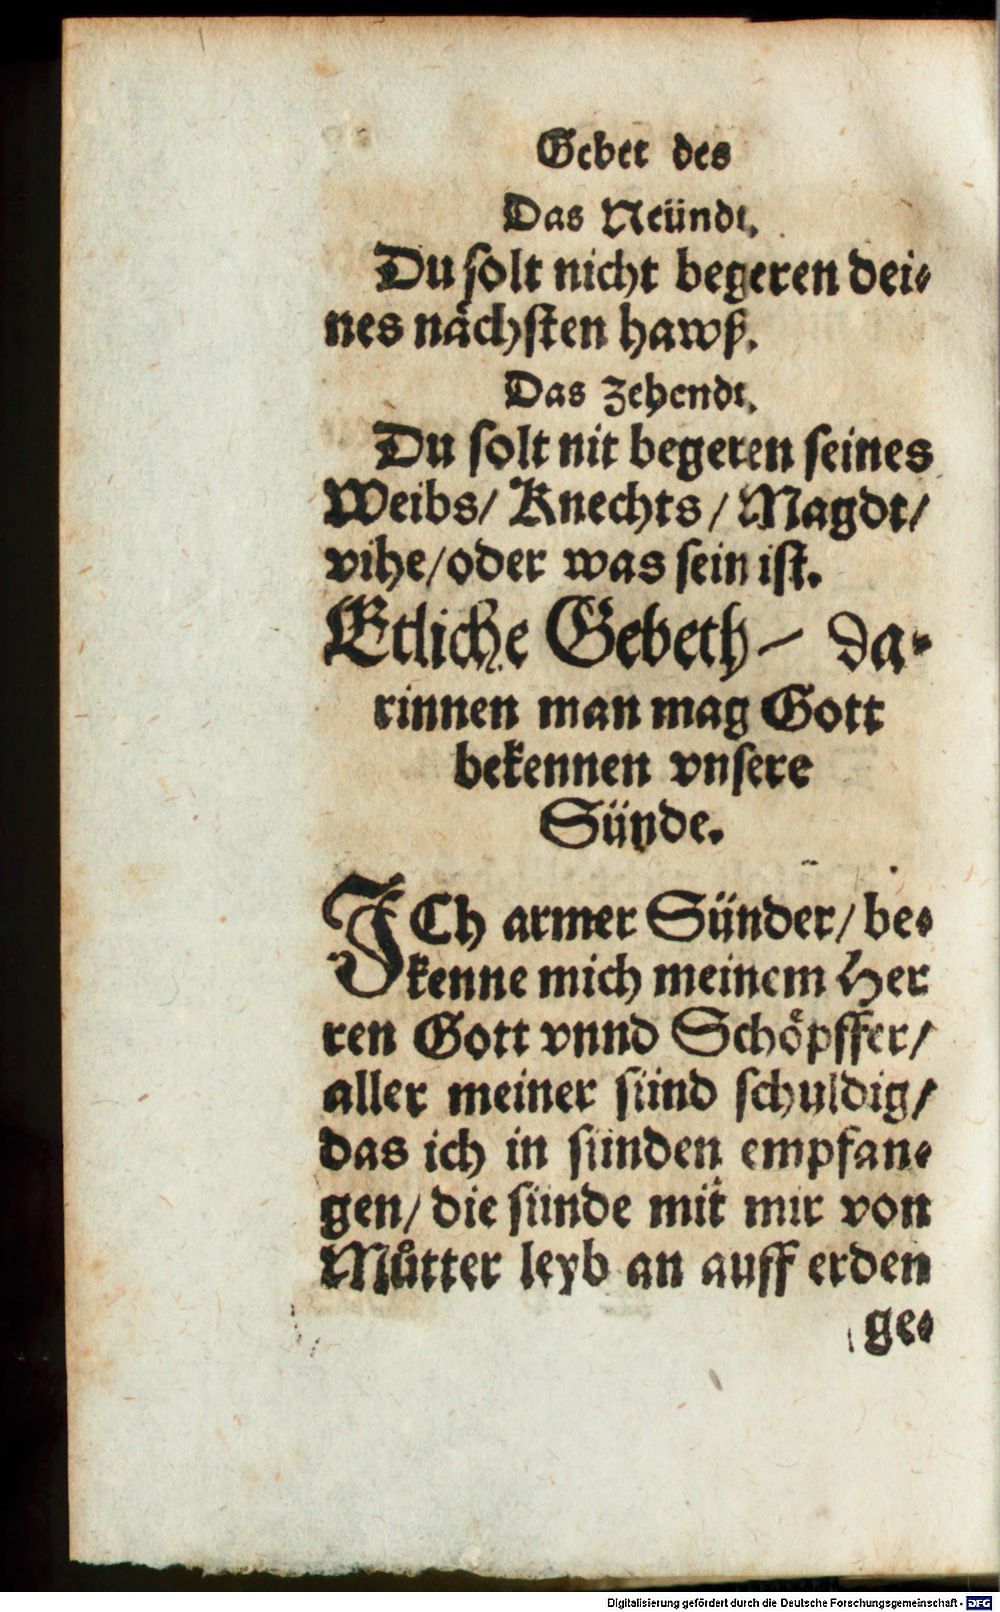 Gebet des
Das Neündt.
Du solt nicht begeren dei⸗
nes nächsten hawß.
Das Zehendt.
Du solt nit begeren seines
Weibs/ Knechts/ Magdt/
vihe/ oder was sein ist.
Etliche Gebeth – da⸗
rinnen man mag Gott
bekennen vnsere
Sünde.
ICh armer Sünder/ be⸗
kenne mich meinem Her
ren Gott vnnd Schöpffer/
aller meiner sünd schuldig/
das ich in sünden empfan⸗
gen/ die sünde mit mir von
Můtter leyb an auff erden
ge⸗
Digitalisierung gefördert durch die Deutsche Forschungsgemeinschaft - DFG